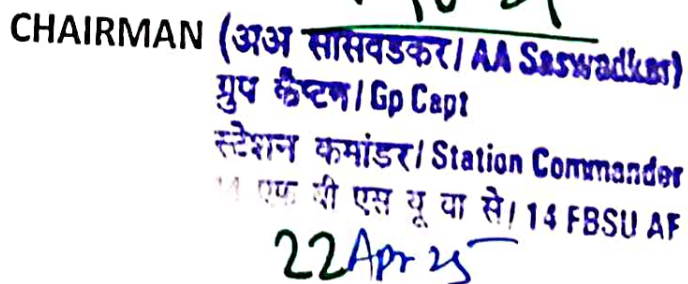 CHAIRMAN (अअ सासवडकर/ AA Saswadkar)
ग्रुप कैप्टन/ Gp Capt
स्टेशन कमांडर/ Station Commander
14 एफ बी एस यू वा से/ 14 FBSU AF
22 Apr 25